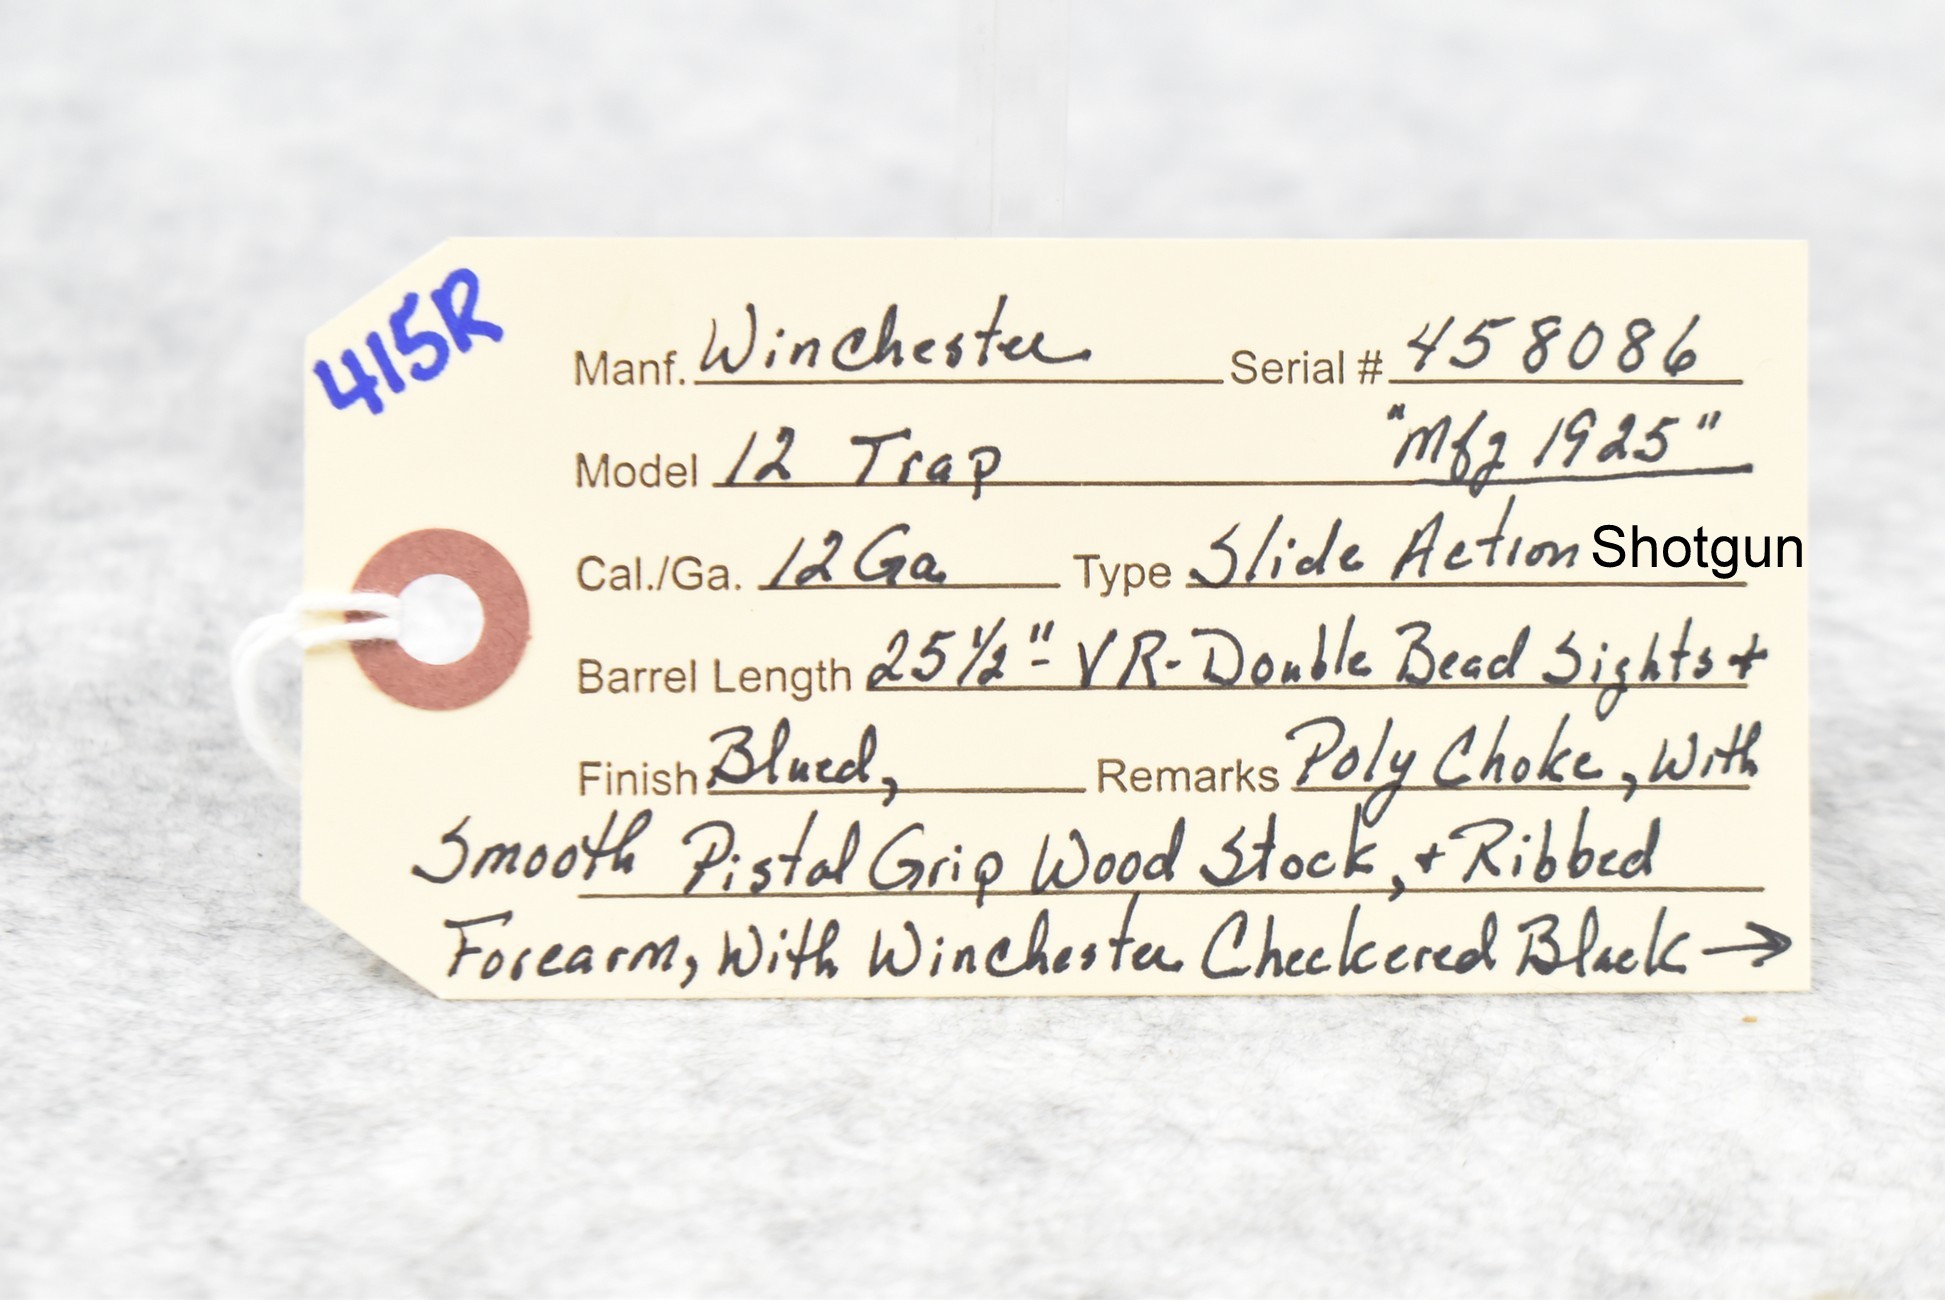 415R
Manf. Winchester Serial # 458086
Model 12 Trap "Mfg 1925"
Cal./Ga. 12 Ga Type Slide Action Shotgun
Barrel Length 25 1/2" - VR - Double Bead Sights +
Finish Blued, Remarks Poly Choke, With
Smooth Pistal Grip Wood Stock, + Ribbed
Forearm, With Winchester Checkered Black →